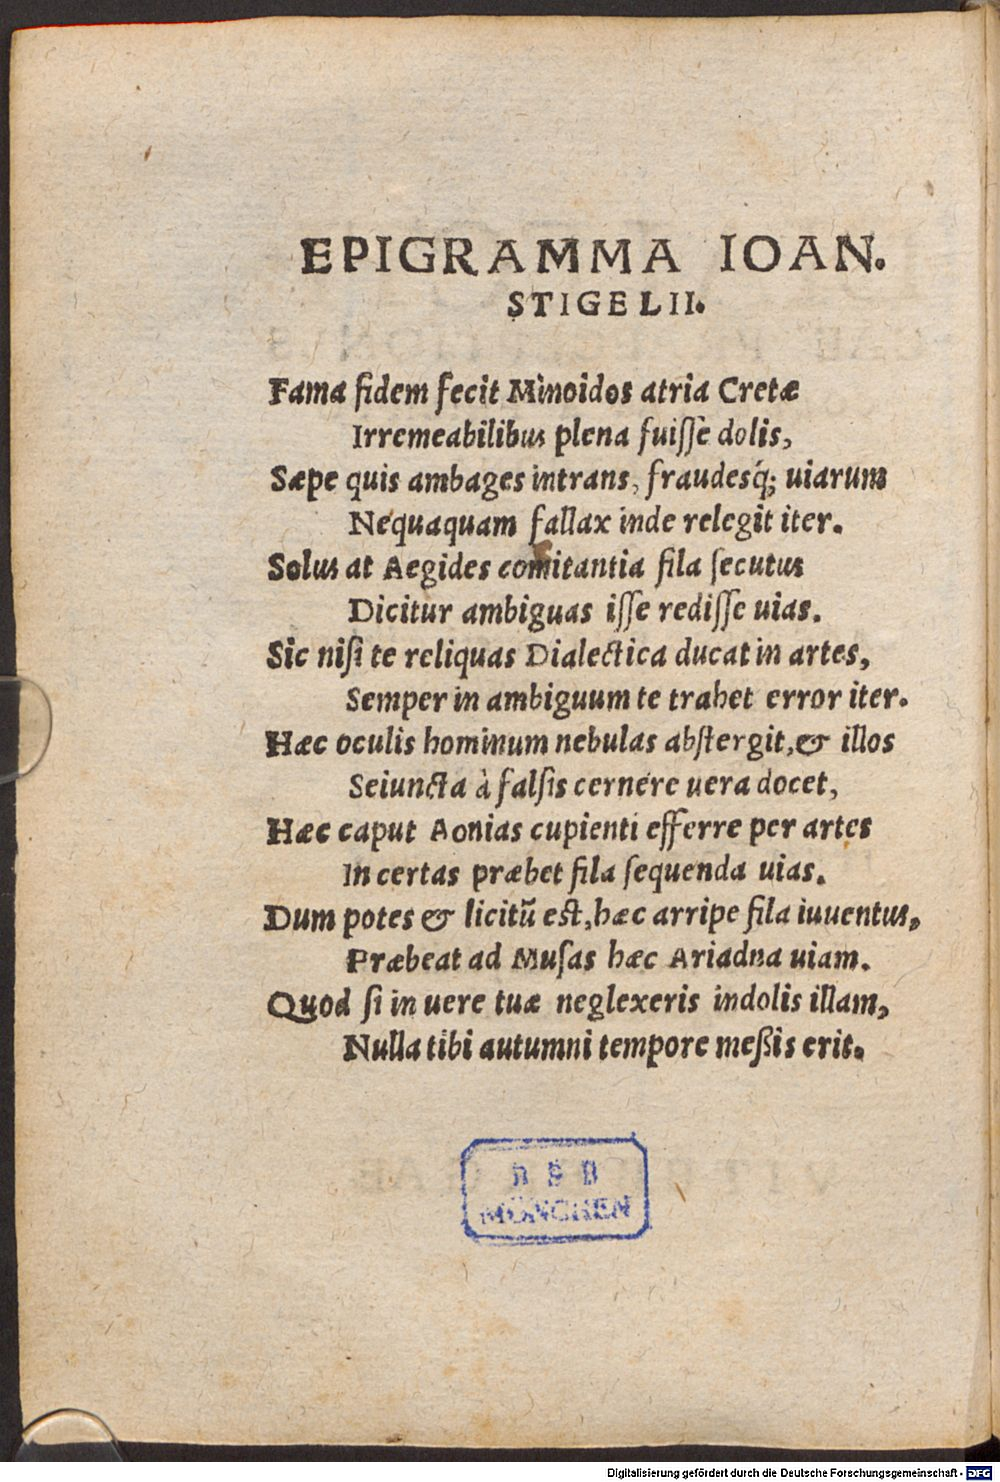 EPIGRAMMA IOAN.
STIGELII.
Fama fidem fecit Minoidos atria Cretæ
Irremeabilibus plena fuisse dolis,
Sæpe quis ambages intrans, fraudesq́; uiarum
Nequaquam fallax inde relegit iter.
Solus at Aegides comitantia fila secutus
Dicitur ambiguas isse redisse uias.
Sic nisi te reliquas Dialectica ducat in artes,
Semper in ambiguum te trahet error iter.
Hæc oculis hominum nebulas abstergit, & illos
Seiuncta à falsis cernere uera docet,
Hæc caput Aonias cupienti efferre per artes
In certas præbet fila sequenda uias.
Dum potes & licitũ est, hæc arripe fila iuuentus,
Præbeat ad Musas hæc Ariadna uiam.
Quod si in uere tuæ neglexeris indolis illam,
Nulla tibi autumni tempore meßis erit.
BSB
MÜNCHEN
Digitalisierung gefördert durch die Deutsche Forschungsgemeinschaft - DFG